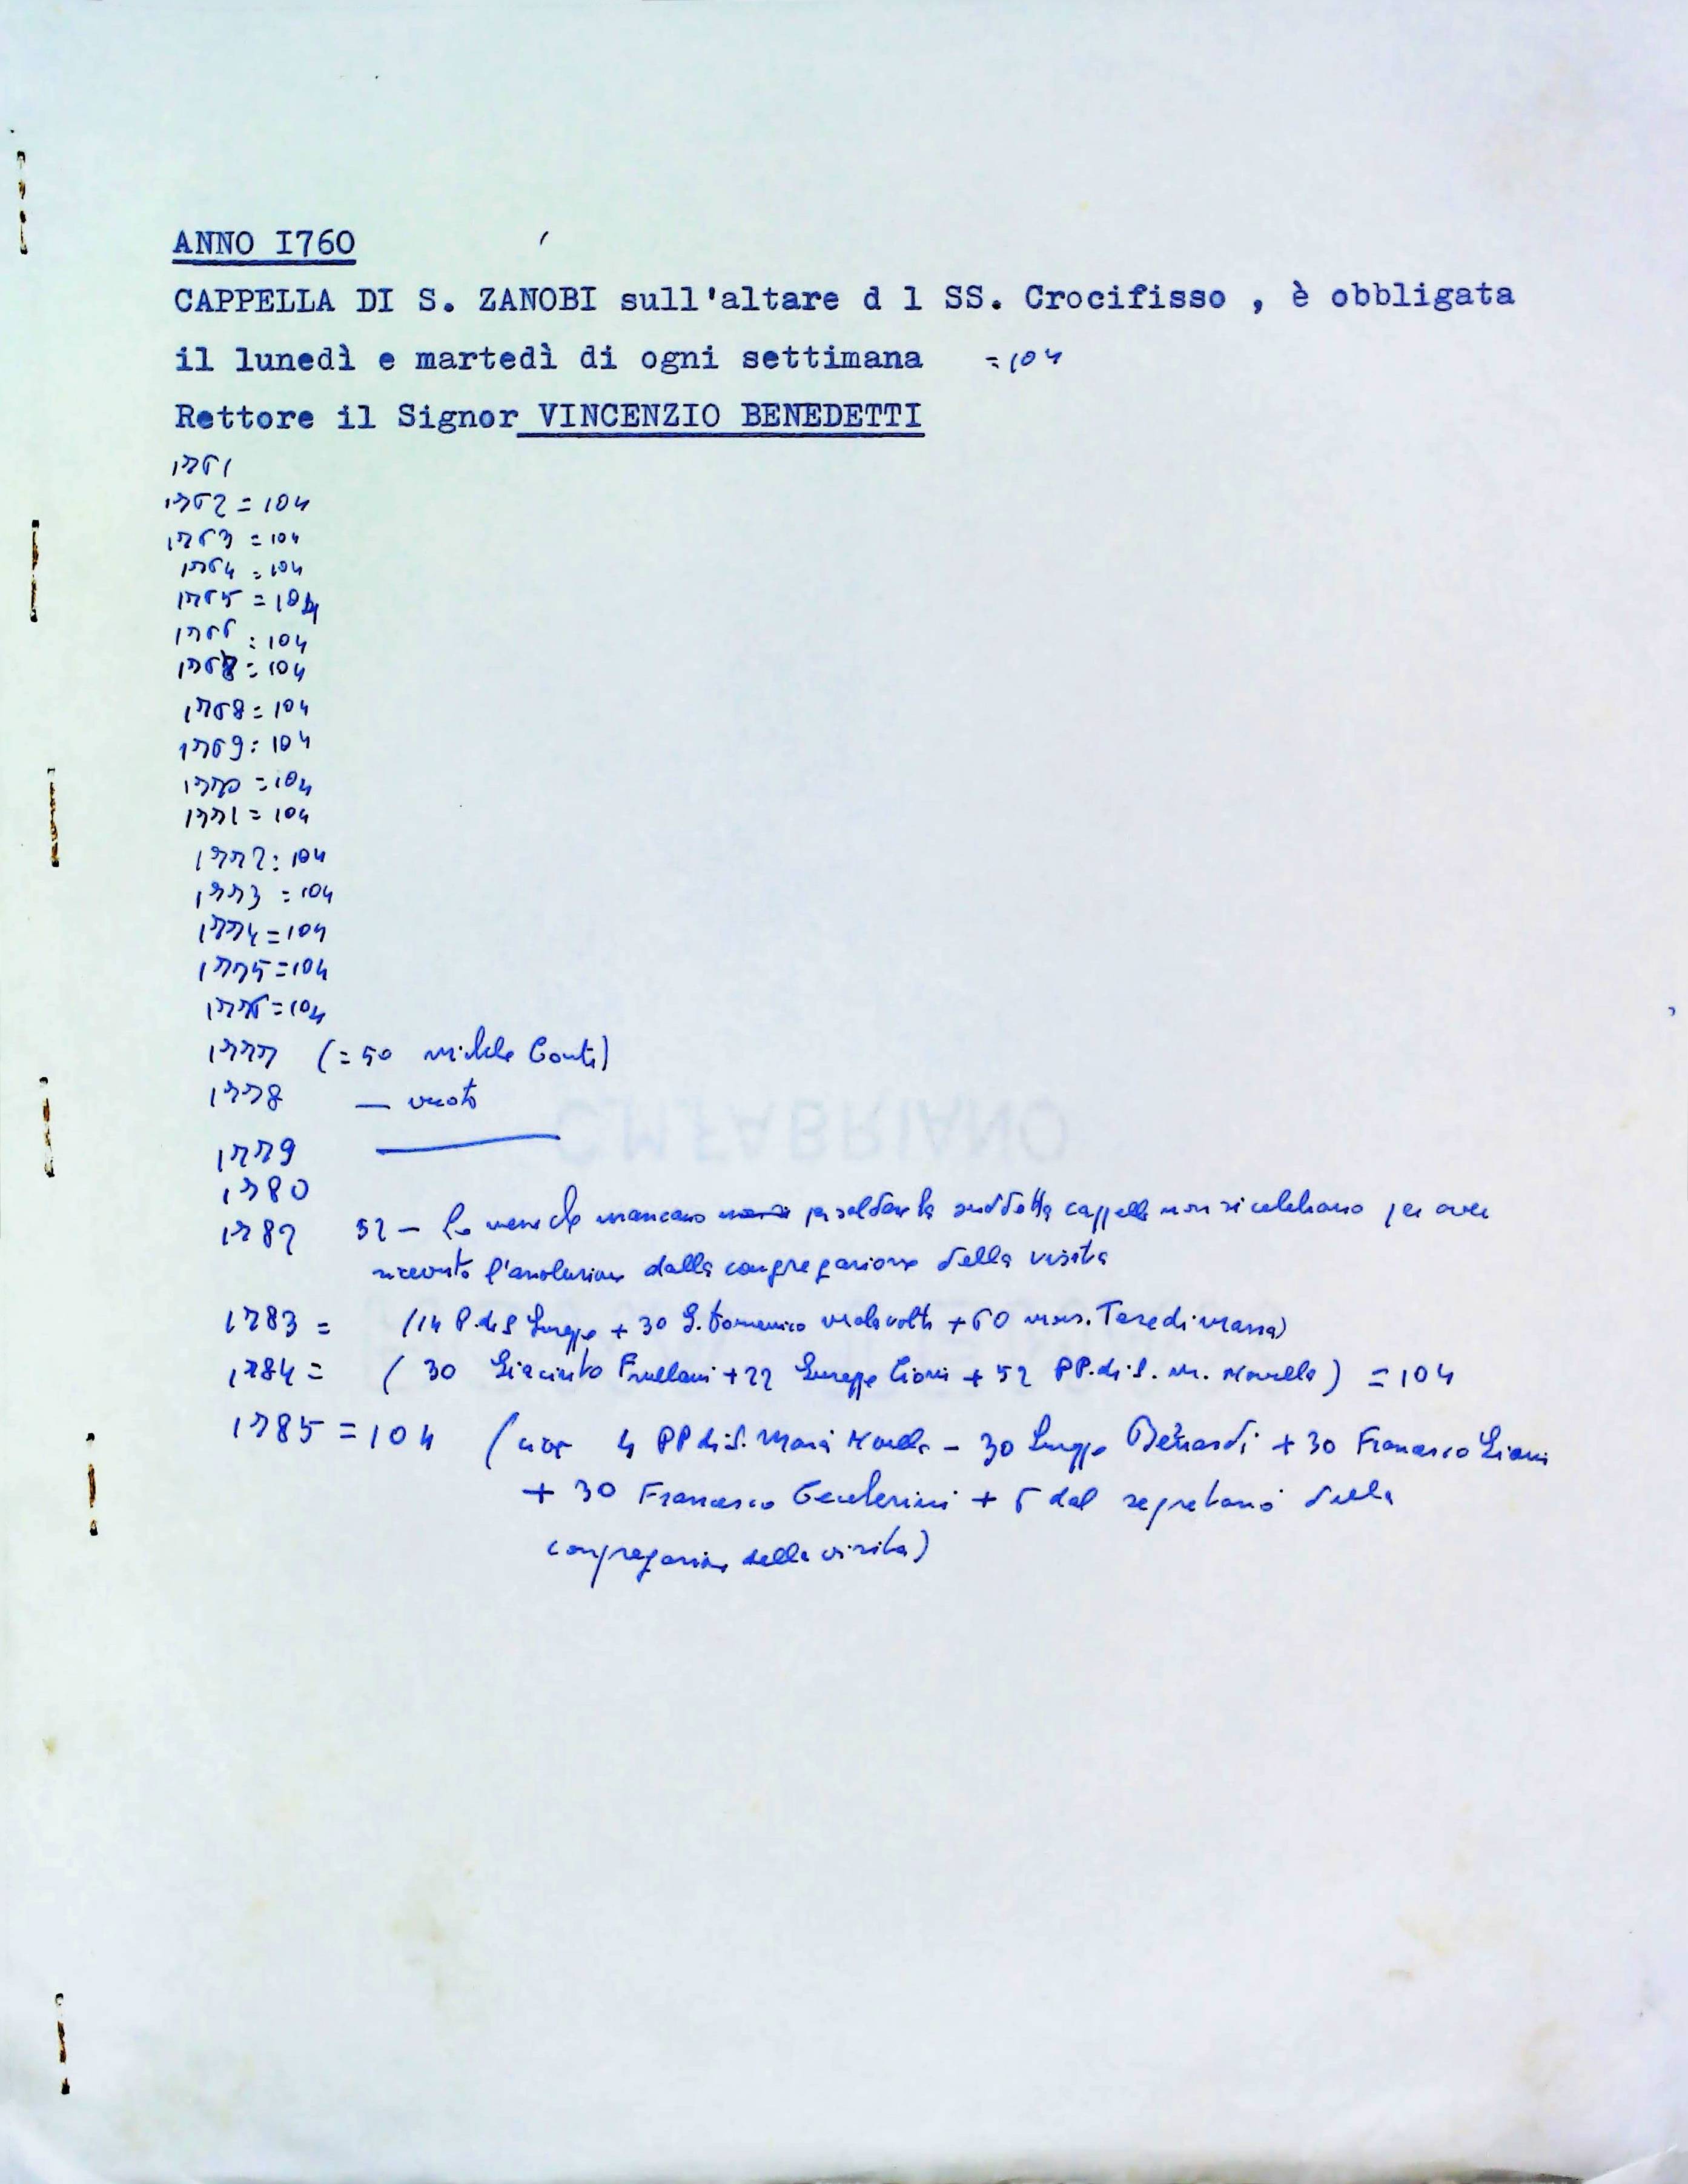 ANNO I760
CAPPELLA DI S. ZANOBI sull'altare d l SS. Crocifisso , è obbligata
il lunedì e martedì di ogni settimana = 104
Rettore il Signor VINCENZIO BENEDETTI
1761
1762 = 104
1763 = 104
1764 = 104
1765 = 104
1766 = 104
1767 = 104
1768 = 104
1769 = 104
1770 = 104
1771 = 104
1772 = 104
1773 = 104
1774 = 104
1775 = 104
1776 = 104
1777 (= 50 Michele Conti)
1778 — vuoto
1779
1780
1782 52 — Le messe che mancano per saldare la suddetta cappella non si celebrano per aver
ricevuto l'assoluzione dalla congregazione della visita
1783 = (14 P. di S. Giuseppe + 30 G. Domenico Malavolti + 60 mons. di Massa)
1784 = ( 30 Giacinto Frullani + 22 Giuseppe Cioni + 52 PP. di S. M. Novella ) = 104
1785 = 104 (cioè 4 PP di S. Maria Novella - 30 Giuseppe + 30 Francesco
+ 30 Francesco + 6 dal segretario della
congregazione della visita)
C.M.FABRIANO